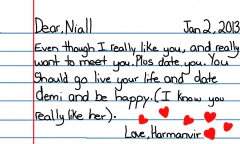 Dear, Niall Jan 2, 2013
Even though I really like you, and really
want to meet you. Plos date you. You
Should go live your life and date
demi and be happy. (I know you
really like her).
Love, Harmanvir